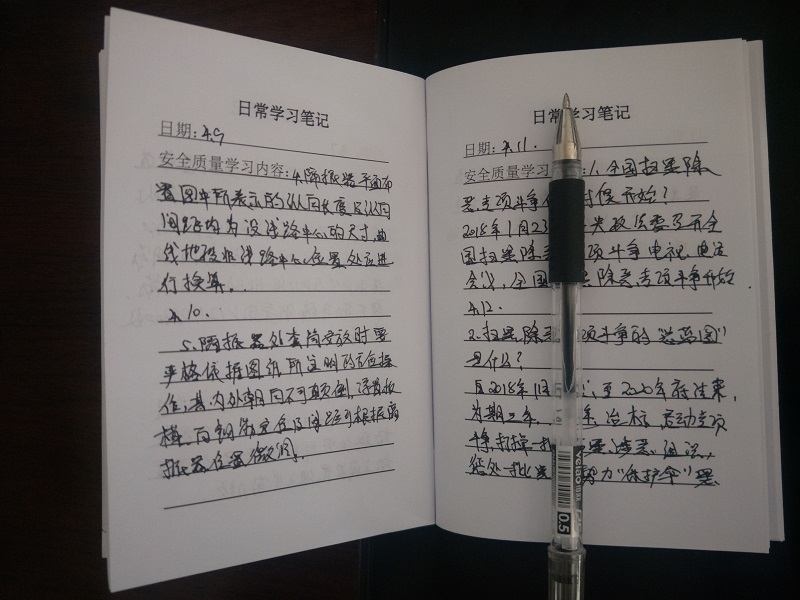 日常学习笔记
日期: 4.9
安全质量学习内容: 4.隔振器平面布
置图中所表示的纵向长度及纵向
间距均为沿线路中心的尺寸,曲
线地段非线路中心位置处应进
行换算。
4.10.
5.隔振器外套筒安放时要
严格依据图纸所注明的方位操
作,其内外朝向不可颠倒,浮置板
横、向钢筋定位及间距可根据隔
振器位置微调。
日常学习笔记
日期: 4.11.
安全质量学习 1.全国扫黑除
恶专项斗争 时候开始?
2018年1月23 央政法委召开全
国扫黑除恶 项斗争电视电话
会议,全国 除恶专项斗争开始.
4.12.
2.扫黑除恶 项斗争的"
是什么?
自2018年 至2020年底结束,
为期三年. 治标,启动专项
斗争,打掉一批
惩处一批 势力"保护伞"
0.5